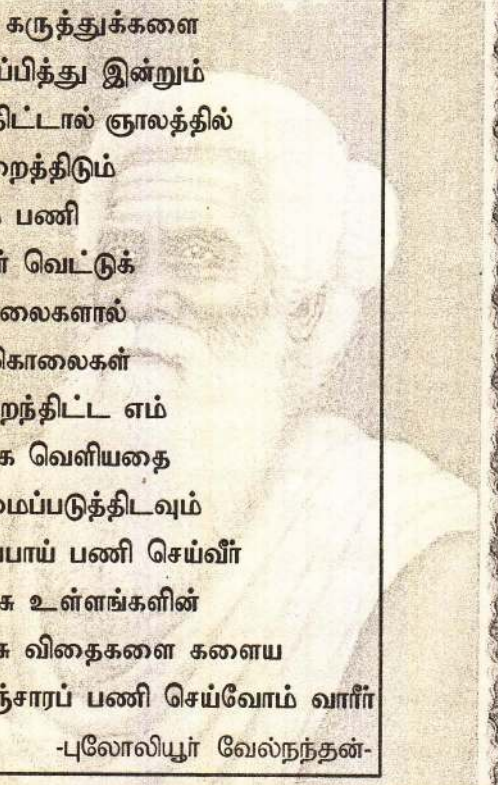 கருத்துக்களை
ப்பித்து இன்றும்
திட்டால் ஞாலத்தில்
றைத்திடும்
பணி
வெட்டுக்
லைகளால்
கொலைகள்
றந்திட்ட எம்
க வெளியதை
மைப்படுத்திடவும்
ப்பாய் பணி செய்வீர்
சு உள்ளங்களின்
சு விதைகளை களைய
ஞ்சாரப் பணி செய்வோம் வாரீர்
-புலோலியூர் வேல்நந்தன்-